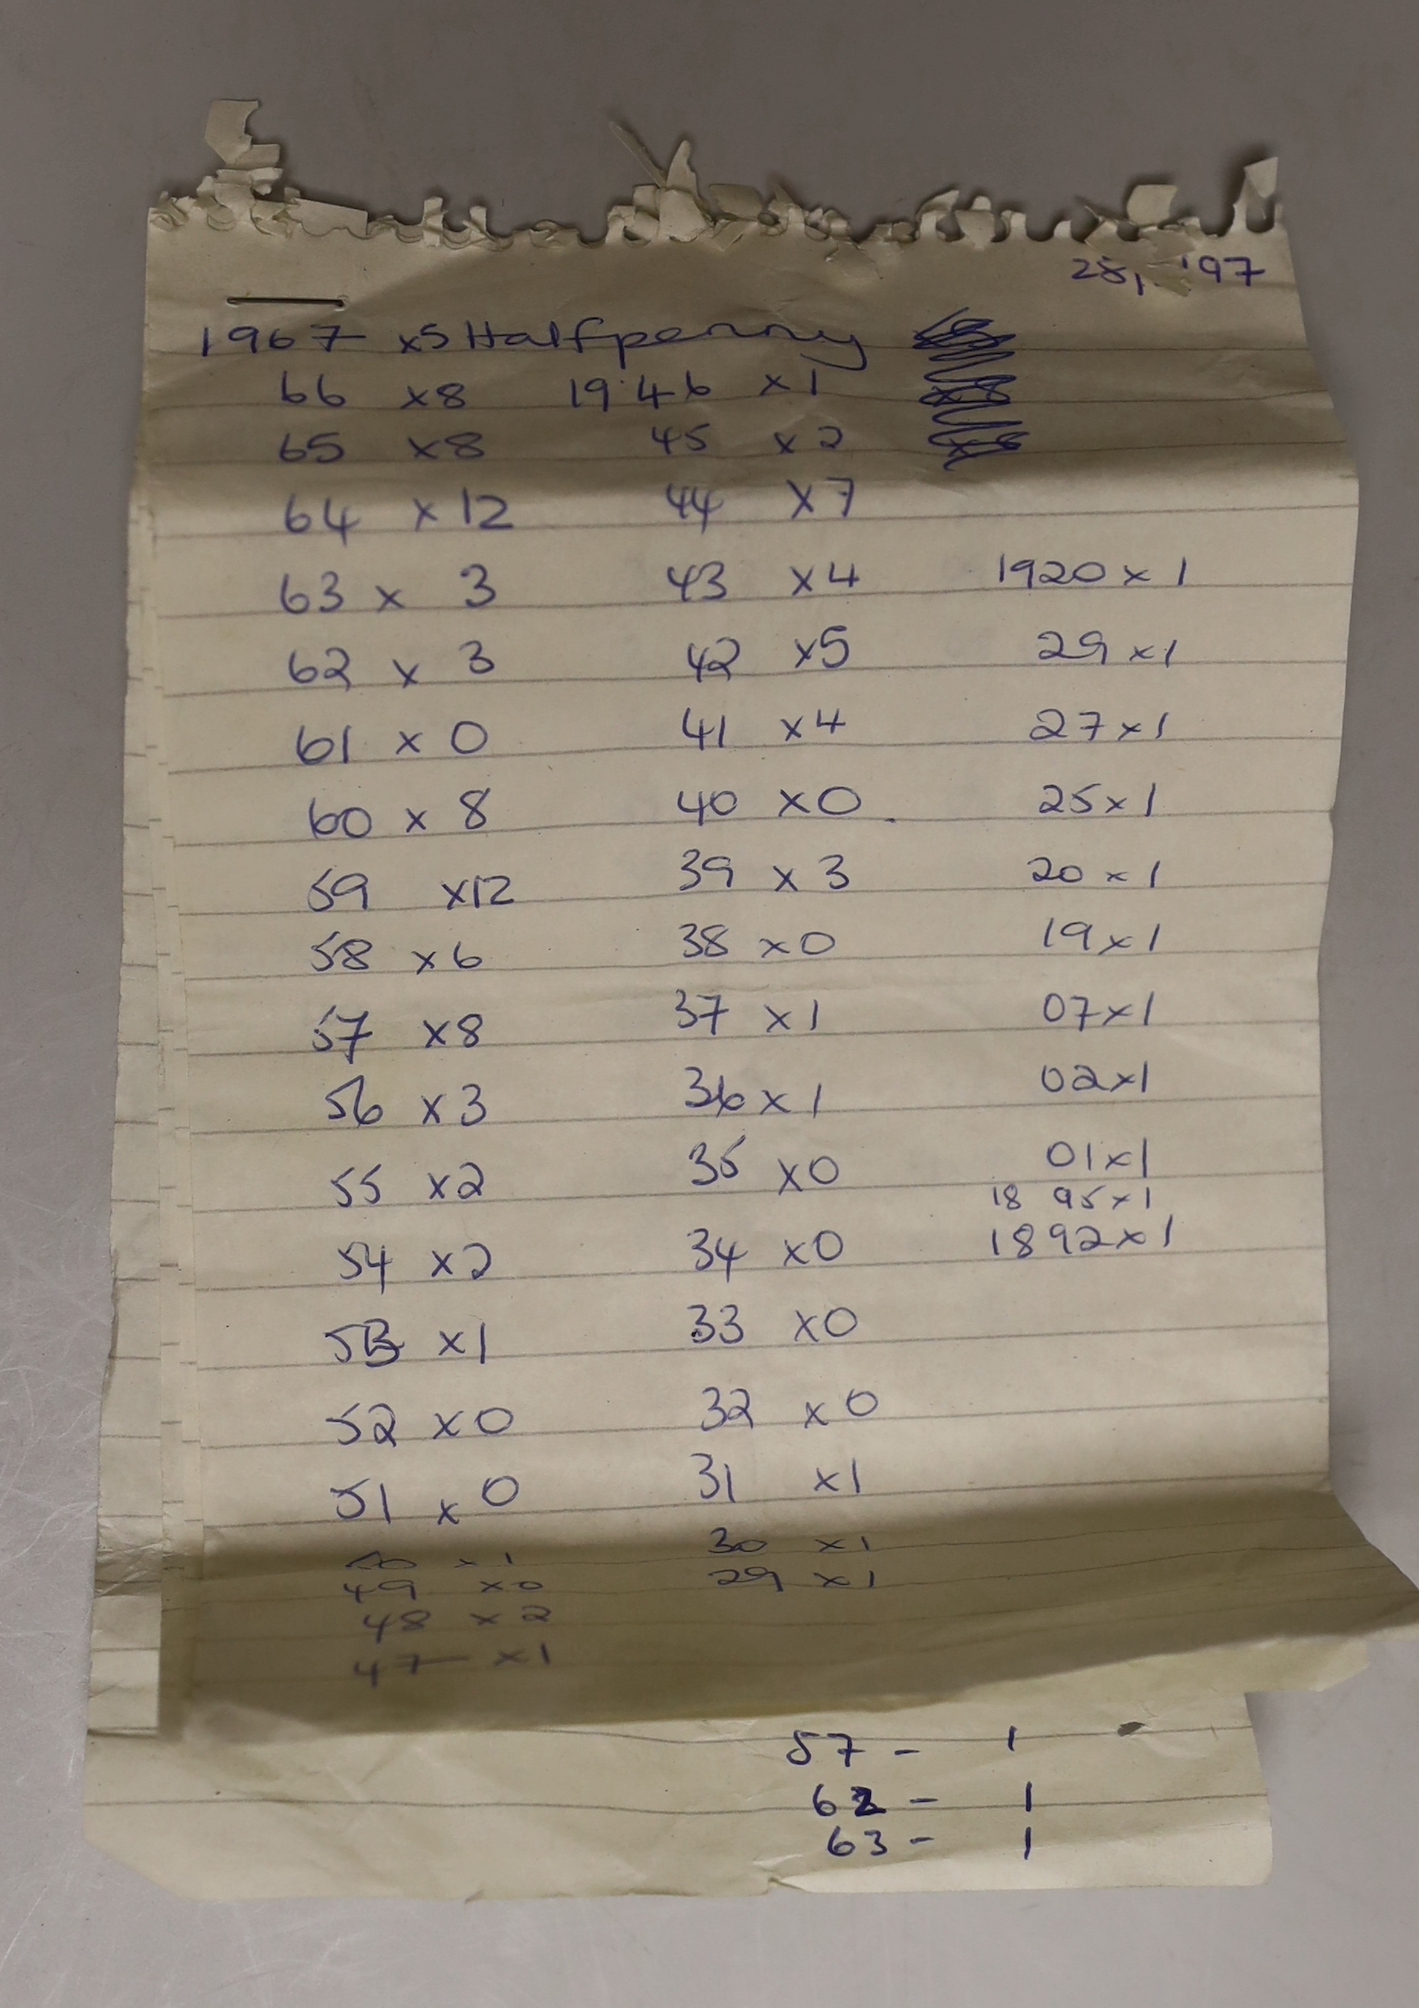 28, '97
1967 x5 Halfpenny
66 x8 1946 x1
65 x8 45 x2
64 x 12 44 x7
63 x 3 43 x4 1920 x 1
62 x 3 42 x5 29 x1
61 x 0 41 x4 27 x1
60 x 8 40 x0 25 x 1
59 x12 39 x 3 20 x 1
58 x6 38 x0 19 x 1
57 x8 37 x1 07 x1
56 x3 36 x 1 02 x1
55 x2 35 x0 01 x1
18 95 x 1
54 x2 34 x0 1892 x 1
53 x1 33 x0
52 x0 32 x0
51 x 0 31 x1
50 x 1 30 x1
49 x0 29 x1
48 x 2
47 x1
57 - 1
62 - 1
63 - 1